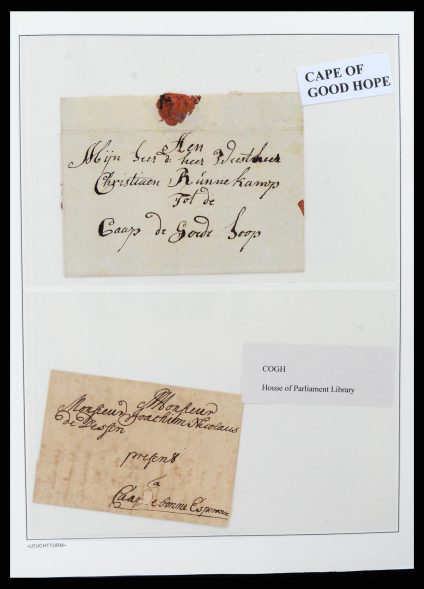 CAPE OF
GOOD HOPE
Aen
Mijn heer de heer
Christiaen Runnekamp
Tot de
Caap de Goede hoop
COGH
House of Parliament Library
Monsieur
Monsieur Joachim Nicolaus
de Dessen
present
a
Caap de bonne Esperance
»LEUCHTTURM«